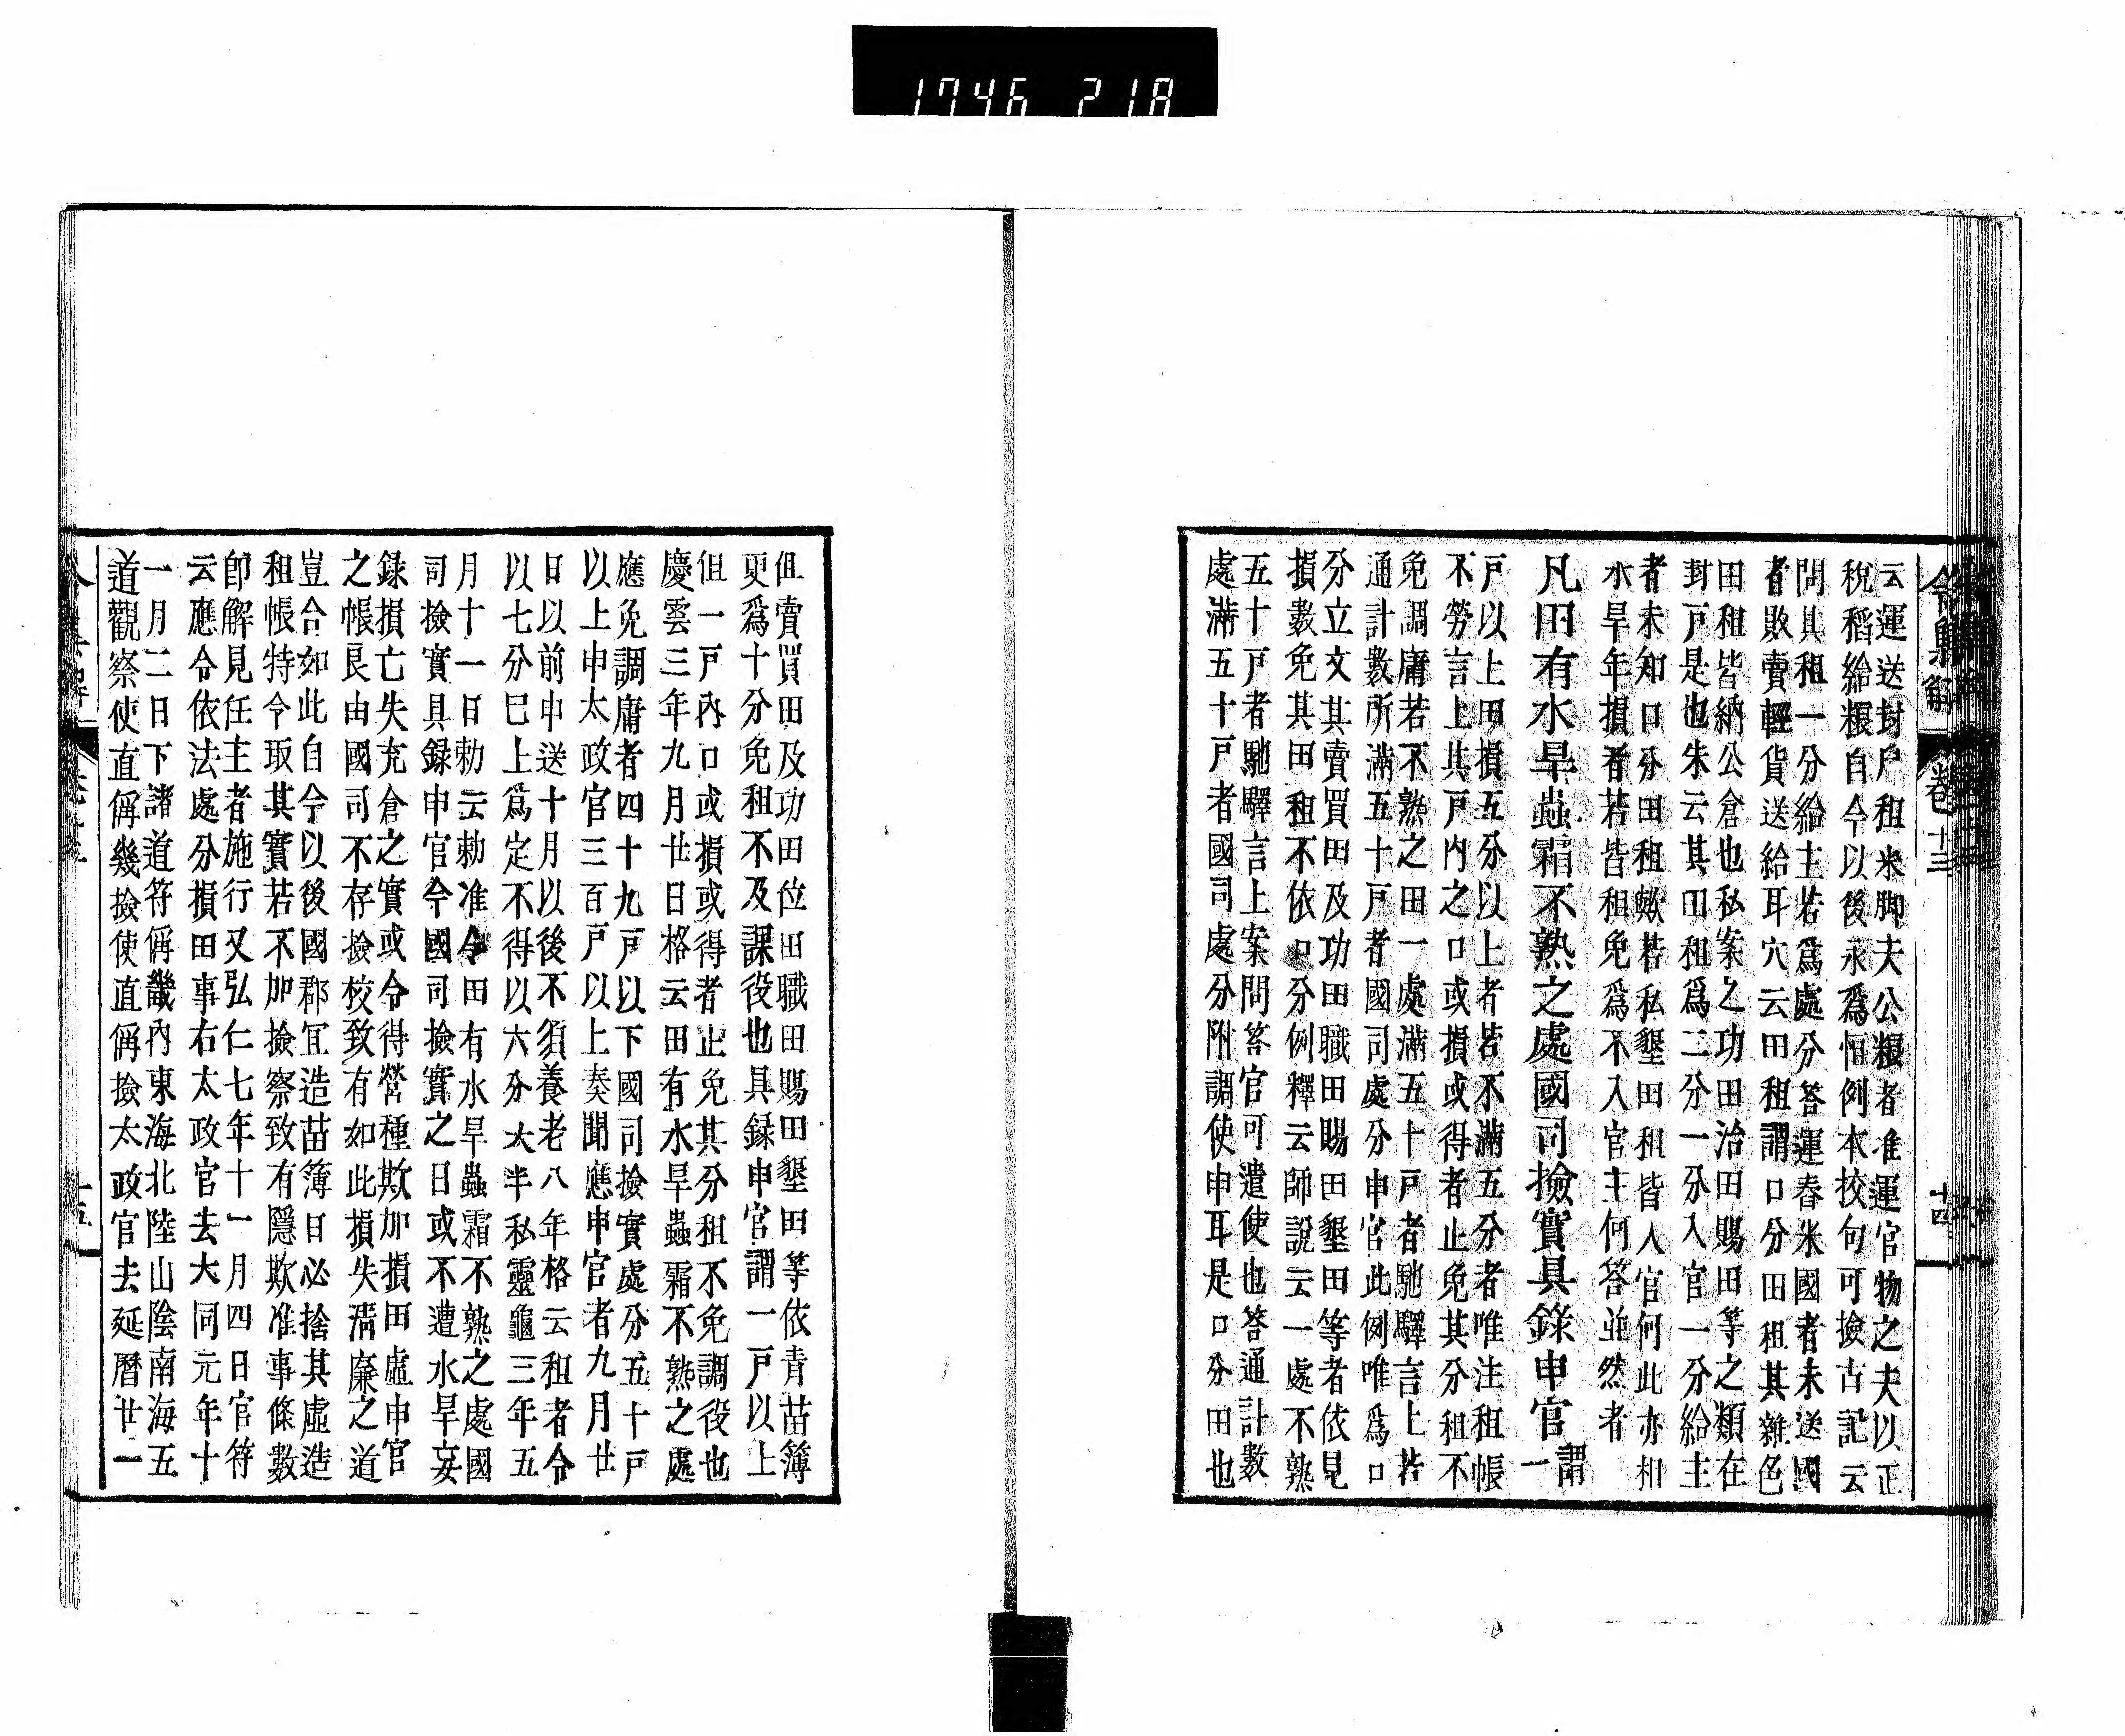 1746 218
令集解 卷十三 十四
云運送封戶租米脚夫公粮者准運官物之夫以正
稅稻給粮自今以後永爲恒例本挍句可撿古記云
問其租一分給主若爲處分荅運舂米國者未送國
者販賣輕貨送給耳穴云田租謂口分田租其雜色
田租皆納公倉也私案之功田治田賜田等之類在
封戶是也朱云其田租爲二分一分入官一分給主
者未知口分田租歟若私墾田租皆入官何此亦相
水旱年損者若皆租免爲不入官主何答並然者
凡田有水旱蟲霜不熟之處國司撿實具錄申官謂一
戶以上田損五分以上者若不滿五分者唯注租帳
不勞言上其戶內之口或損或得者止免其分租不
免調庸若不熟之田一處滿五十戶者馳驛言上若
通計數所滿五十戶者國司處分申官此例唯爲口
分立文其賣買田及功田職田賜田墾田等者依見
損數免其田租不依口分例釋云師說云一處不熟
五十戶者馳驛言上案問答官可遣使也答通計數
處滿五十戶者國司處分附調使申耳是口分田也
但賣買田及功田位田職田賜田墾田等依青苗簿
更爲十分免租不及課役也具錄申官謂一戶以上
但一戶內口或損或得者止免其分租不免調役也
慶雲三年九月廿日格云田有水旱蟲霜不熟之處
應免調庸者四十九戶以下國司撿實處分五十戶
以上申太政官三百戶以上奏聞應申官者九月廿
日以前申送十月以後不須養老八年格云租者令
以七分已上爲定不得以六分大半私靈龜三年五
月十一日勅云勅准令田有水旱蟲霜不熟之處國
司撿實具録申官今國司撿實之日或不遭水旱妄
録損亡失充倉之實或令得營種欺加損田虛申官
之帳良由國司不存撿校致有如此損失淸廉之道
豈合如此自今以後國郡宜造苗簿日必捨其虛造
租帳特令取其實若不加撿察致有隱欺准事條數
卽解見任主者施行又弘仁七年十一月四日官符
云應令依法處分損田事右太政官去大同元年十
一月二日下諸道符偁畿內東海北陸山陰南海五
道觀察使直偁幾撿使直偁撿太政官去延曆廿一
十五